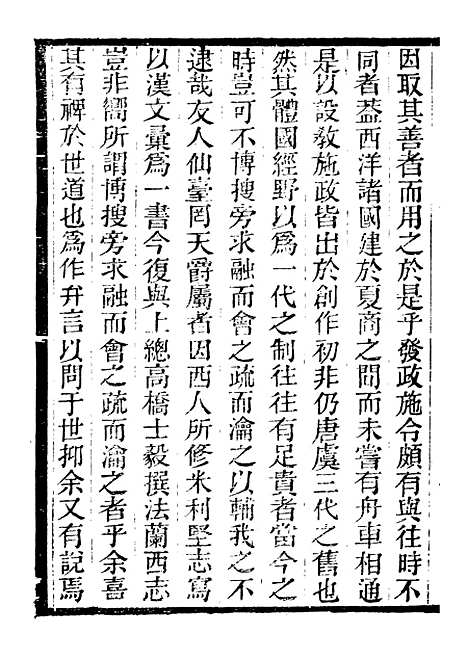 因取其善者而用之於是乎發政施令頗有與往時不
同者葢西洋諸國建於夏商之間而未嘗有舟車相通
是以設敎施政皆出於創作初非仍唐虞三代之舊也
然其體國經野以爲一代之制往往有足貴者當今之
時豈可不博搜旁求融而會之疏而瀹之以輔我之不
逮哉友人仙臺罔天爵屬者因西人所修米利堅志寫
以漢文彙爲一書今復與上總高橋士毅撰法蘭西志
豈非嚮所謂博搜旁求融而會之疏而瀹之者乎余喜
其有裨於世道也爲作弁言以問于世抑余又有說焉